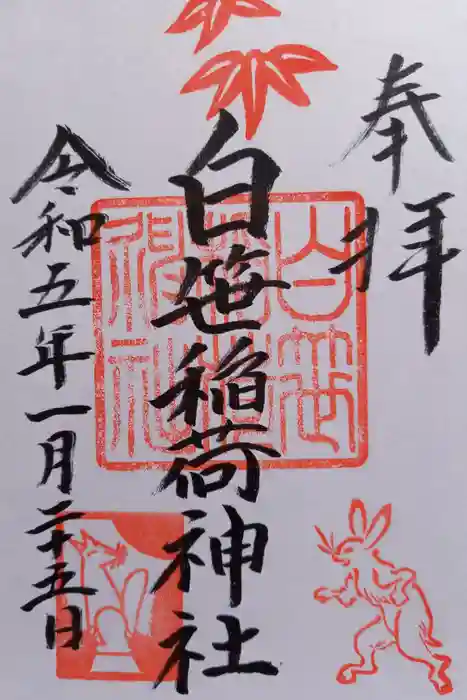 奉拝
白笹稲荷神社
白笹稲荷神社
令和五年一月二十五日